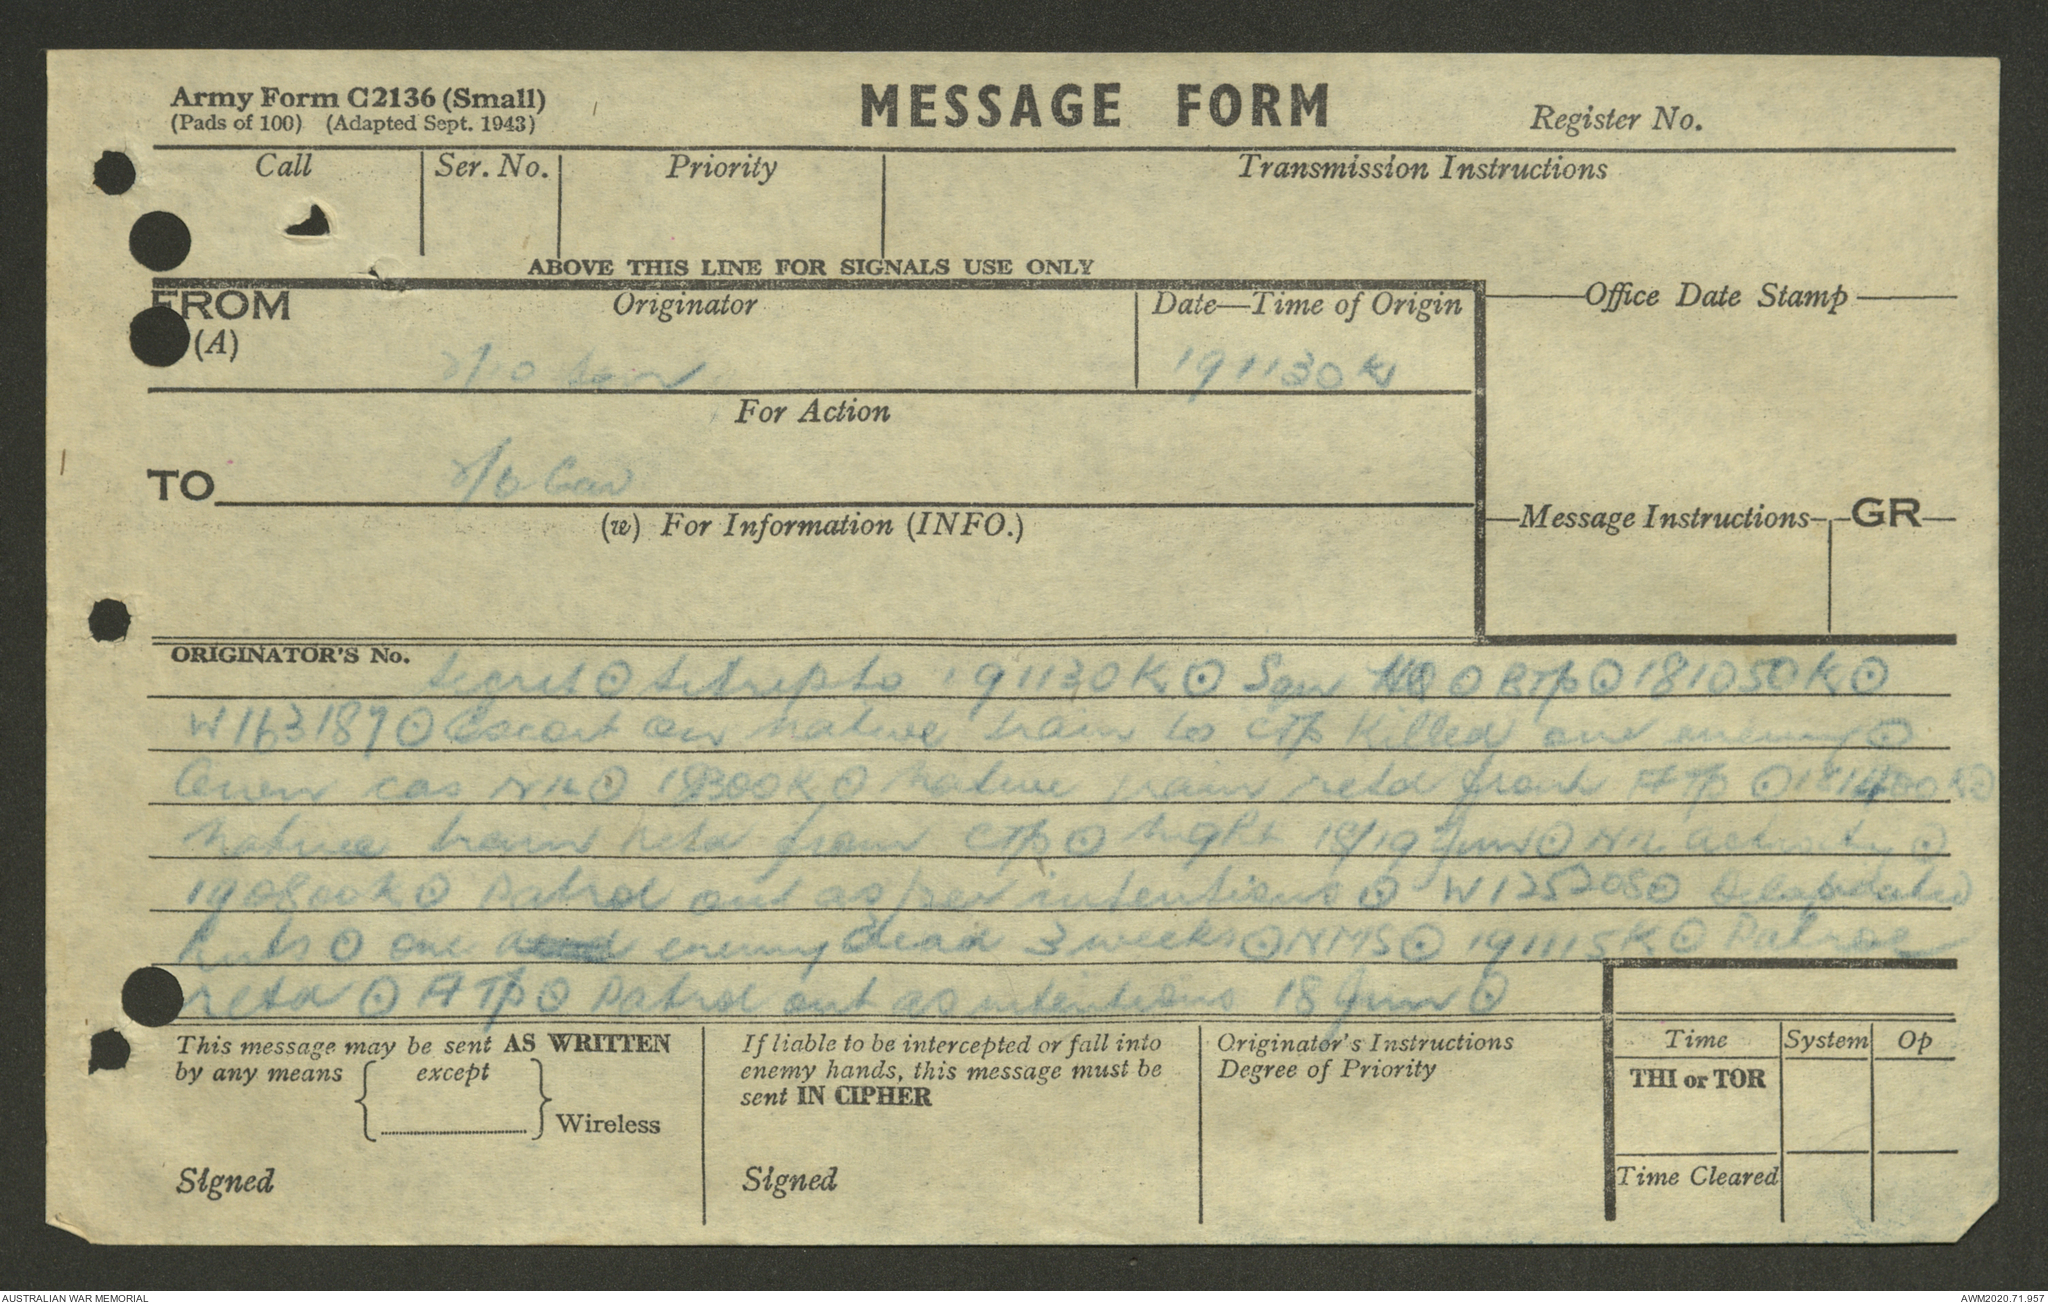 Army Form C2136 (Small)
(Pads of 100) (Adapted Sept. 1943)
MESSAGE FORM
Register No.
Call
Ser. No.
Priority
Transmission Instructions
ABOVE THIS LINE FOR SIGNALS USE ONLY
FROM
(A)
Originator
Date—Time of Origin
Office Date Stamp
191130K
For Action
TO
(w) For Information (INFO.)
Message Instructions
GR
ORIGINATOR'S No.
Secret ⊙ Sitrep to 191130K ⊙ Sqn HQ ⊙ BTp ⊙ 181050K ⊙
W163189 ⊙ Escort on native train to CTp killed one enemy ⊙
Own cas Nil ⊙ 181300K ⊙ Native train retd from ATp ⊙ 181400K ⊙
Native train retd from CTp ⊙ Night 18/19 Jun ⊙ Nil activity ⊙
190800K ⊙ Patrol out as per intentions ⊙ W125208 ⊙ Dilapidated
huts ⊙ one enemy dead 3 weeks ⊙ NMS ⊙ 191115K ⊙ Patrol
retd ⊙ ATp ⊙ Patrol out as intentions 18 Jun ⊙
This message may be sent AS WRITTEN
by any means except
Wireless
Signed
If liable to be intercepted or fall into
enemy hands, this message must be
sent IN CIPHER
Signed
Originator's Instructions
Degree of Priority
Time
System
Op
THI or TOR
Time Cleared
AUSTRALIAN WAR MEMORIAL
AWM2020.71.957